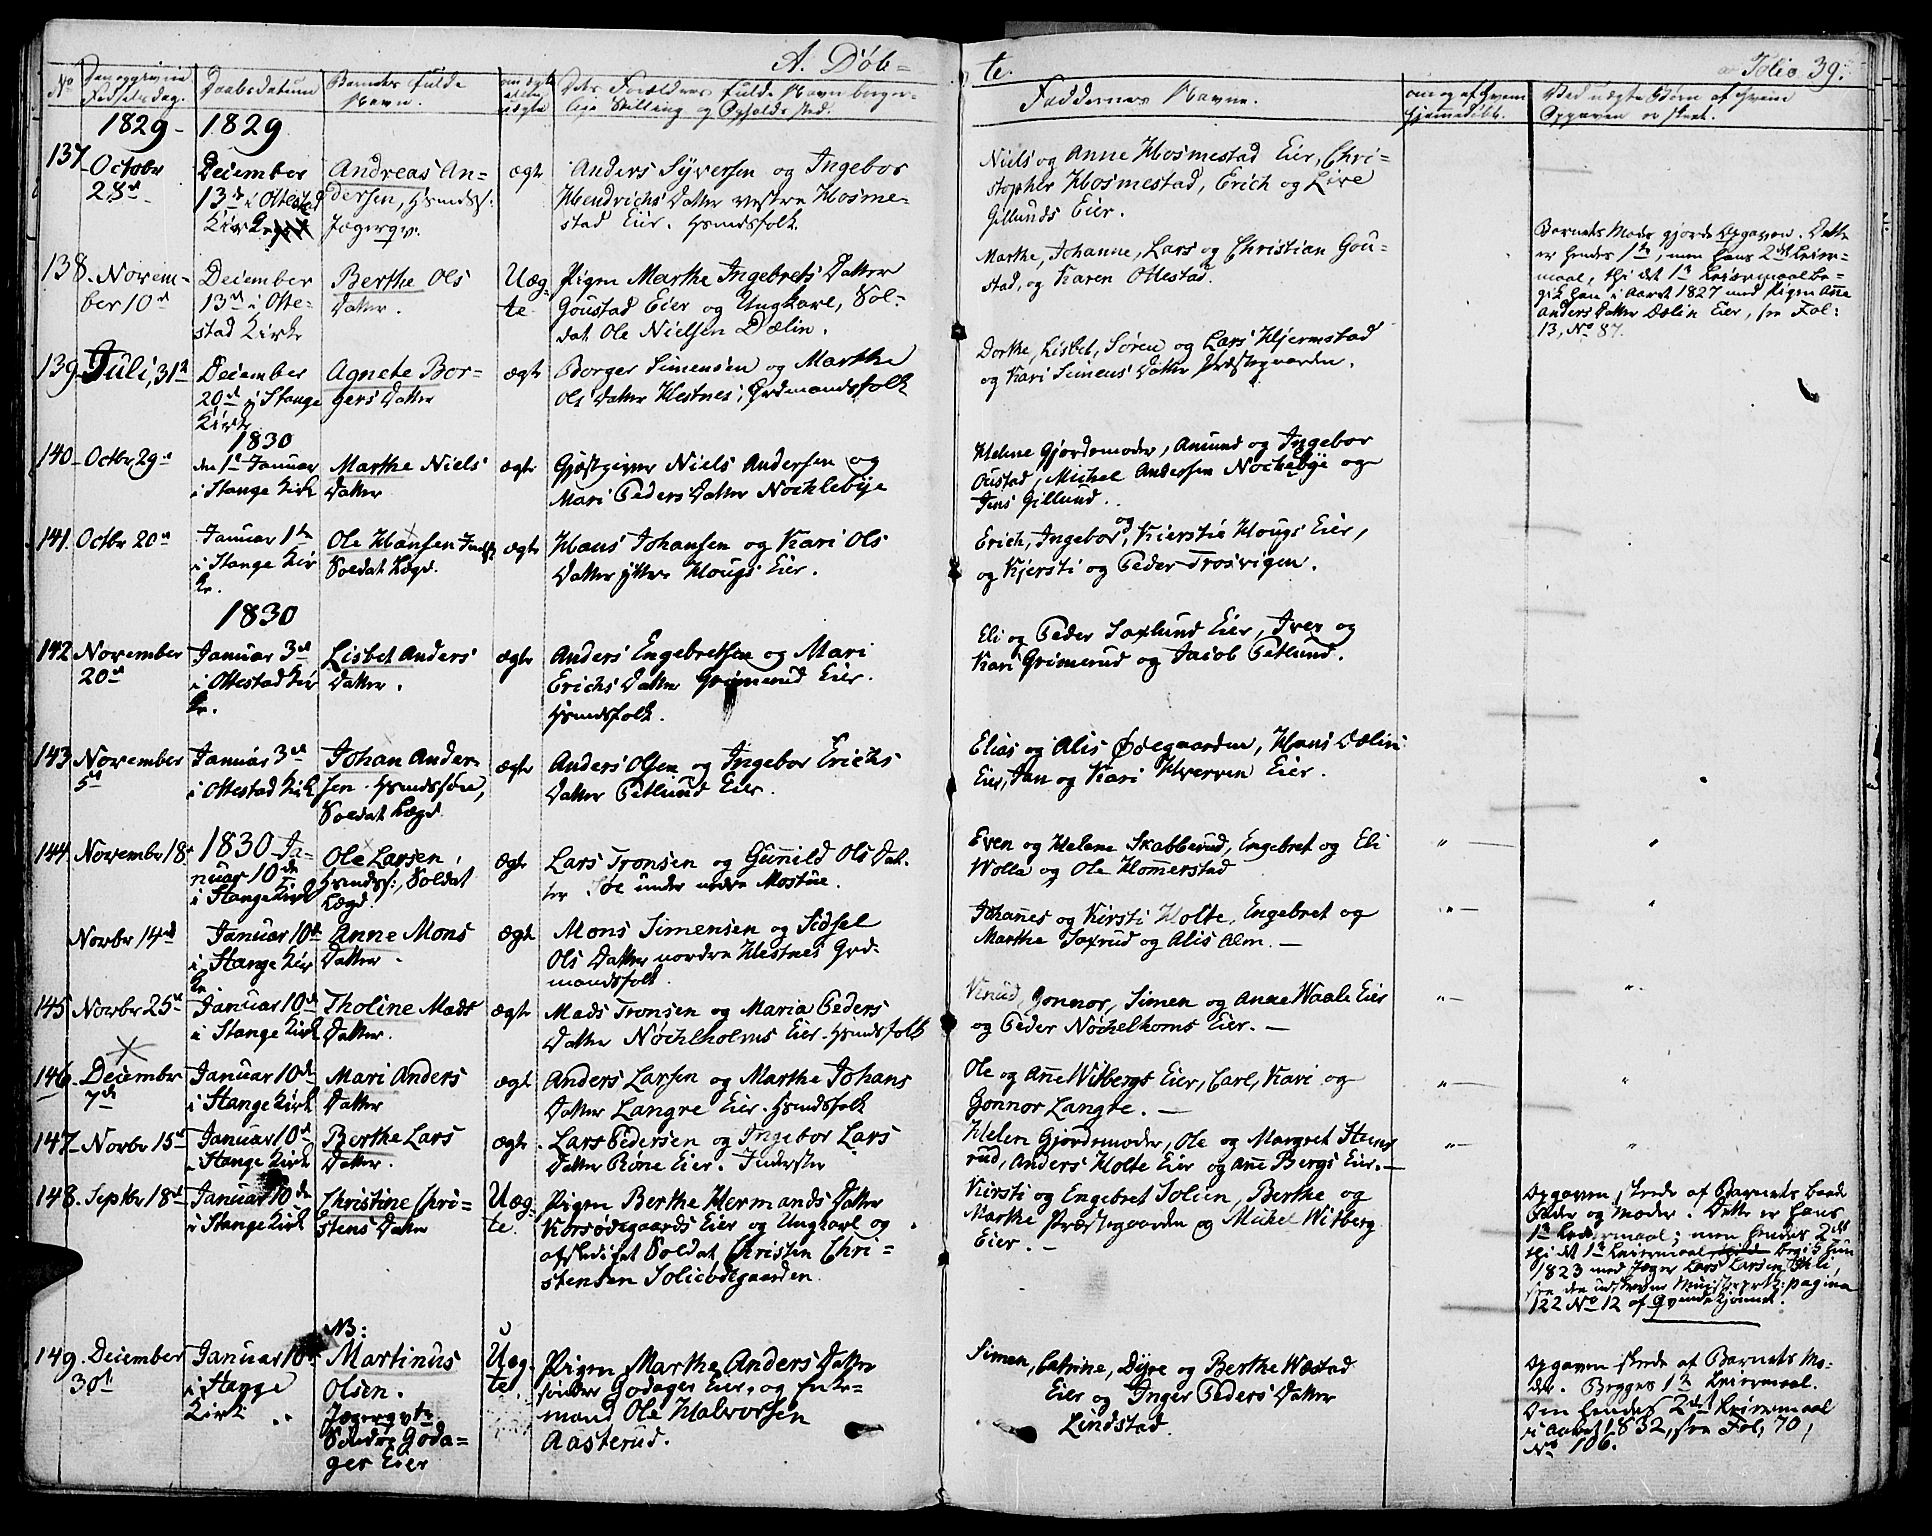 A. Døb=
te.
Folio 39.
No
Fødselsdag.
Daabsdatum
Barnets fulde
Navn.
uægte
Faddernes Navne.
Ved uægte Børn af hvem
Opgaven er skeet.
1829 1829
137 October
28de
December
13de i Ottestad
Kirke
Andreas An-
dersen, Hsmdss:
Jægerqv.
ægte
Anders Syversen og Ingebor
Hendrichs Datter vestre Hosme-
stad Eier. Hsmdsfolk.
Niels og Anne Hosmestad Eier, Chri-
stopher Hosmestad, Erich og Live
Gillunds Eier.
138. Novem-
ber 10de
December
13de i Otte-
stad Kirke
Berthe Ols
Datter.
Uæg-
te
Pigen Marthe Ingebrets Datter
Goustad Eier og Ungkarl, Sol-
dat Ole Nielsen Dælin.
Marthe, Johanne, Lars og Christian Gou-
stad, og Karen Ottestad.
Barnets Moder gjorde Opgaven. Dette
er hendes 1te, men hans 2det Leier-
maal, thi det 1te Leiermaal be-
gik han i Aaret 1827 med Pigen Anne
Anders Datter Dælin Eier, see Fol:
13, No 87.
139 Juli, 31te
December
20de i Stange
Kirke
Agnete Bor-
gers Datter
ægte
Borger Simensen og Marthe
Ols Datter Hestnes, Grdmandsfolk
Dorthe, Lisbet, Søren og Lars Hjermstad
og Kari Simens Datter Præstegaarden.
1830
140 Octbr 29de
den 1te Januar
i Stange Kirke
Marthe Niels
Datter
ægte
Gjæstgiver Niels Andersen og
Mari Peders Datter Nøchlebye
Helene Gjordemoder, Amund og Ingebor
Oustad, Michel Andersen Nøchlebye og
Jens Gillund.
141. Octbr 20de
Januar 1te
i Stange Kir
ke.
Ole Hansen
Soldat Lægd.
ægte
Hans Johansen og Kari Ols
Datter yttre Hougs Eier.
Erich, Ingebor og Kierstie Hougs Eier,
og Kjersti og Peder Trosvigen.
1830
142 November
20de
Januar 3de
i Ottestad Kir
ke.
Lisbet Anders
Datter.
ægte
Anders Engebretsen og Mari
Erichs Datter Grimerud Eier.
Hsmdsfolk.
Eli og Peder Saxlund Eier, Iver og
Kari Grimerud og Jacob Petlund.
143 November
5te
Januar 3de
i Ottestad Kirk
Johan Ander-
sen. Hsmdssøn,
Soldat Lægd
ægte
Anders Olsen og Ingebor Erichs
Datter Petlund Eier.
Elias og Alis Ødegaarden, Hans Dælin
Eier, Jan og Kari Hverven Eier.
144 Novembr 18de
1830 Ja-
nuar 10de
i Stange Kirk
Ole Larsen,
Hsmdss:, Soldat
Lægd.
ægte
Lars Tronsen og Gunild Ols Dat-
ter Søe under nedre Mostue.
Even og Helene Skabberud, Engebret og Eli
Wolla og Ole Hommerstad
Novbr 14de
Januar 10de
i Stange Kir
ke
Anne Mons
Datter.
ægte
Mons Simensen og Sidsel
Ols Datter nordre Hestnes Grd-
mandsfolk
Johannes og Kirsti Holte, Engebret og
Marthe Saxrud og Alis Alm.
145 Novbr 25de
Januar 10de
i Stange Kirk
Tholine Mads
Datter.
ægte
Mads Tronsen og Maria Peders
Datter Nøchlholms Eier. Hsmdsfolk
Knud, Gonnor, Simen og Anne Waale Eier
og Peder Nøchelholms Eier.
146 December
7de
Januar 10de
i Stange Kirk
Mari Anders
Datter
ægte
Anders Larsen og Marthe Johans
Datter Langre Eier. Hsmdsfolk
Ole og Anne Witbergs Eier, Carl, Kari og
Gonnor Langre.
147 Novbr 15de
Januar 10de
i Stange Kirk
Berthe Lars
Datter.
ægte
Lars Pedersen og Ingebor Lars
Datter Røne Eier. Inderster
Helene Gjordemoder, Ole og Margret Stens
rud, Anders Holte Eier og Anne Bergs Eier.
148. Septbr 18de
Januar 10de
i Stange Kirk
Christine Chri-
stens Datter
Uæg-
te.
Pigen Berthe Hermands Datter
Korsødegaards Eier og Ungkarl og
afskediget Soldat Christen Chri-
stensen Solieødegaarden
Kirsti og Engebret Solien, Berthe og
Marthe Præstegaarden og Michel Witberg
Eier.
Opgaven skede af Barnets baade
Fader og Moder. Dette er hans
1te Leiermaal; men hendes 2det
thi det 1te Leiermaal begik hun
1823 med Jæger Lars Larsen
see den udskrevne Ministr.prot: pagina
122 No 12 af Qvindekjønnet.
149. December
30te
Januar 10de
i Stange
Kirk
NB:
Martinus
Olsen.
Jægerqvt
Søndre Goda-
ger Eier
Uæg-
te
Pigen Marthe Anders Datter
søndre Godager Eier, og Enke-
mand Ole Halvorsen
Aasterud.
Simen, Cathrine, Dyre og Berthe Wæstad
Eier og Inger Peders Datter
Lindstad.
Opgaven skede af Barnets Mo-
der. Begges 1te Leiermaal.
Om hendes 2det Leiermaal
i aaret 1832, see Fol. 70,
No 106.